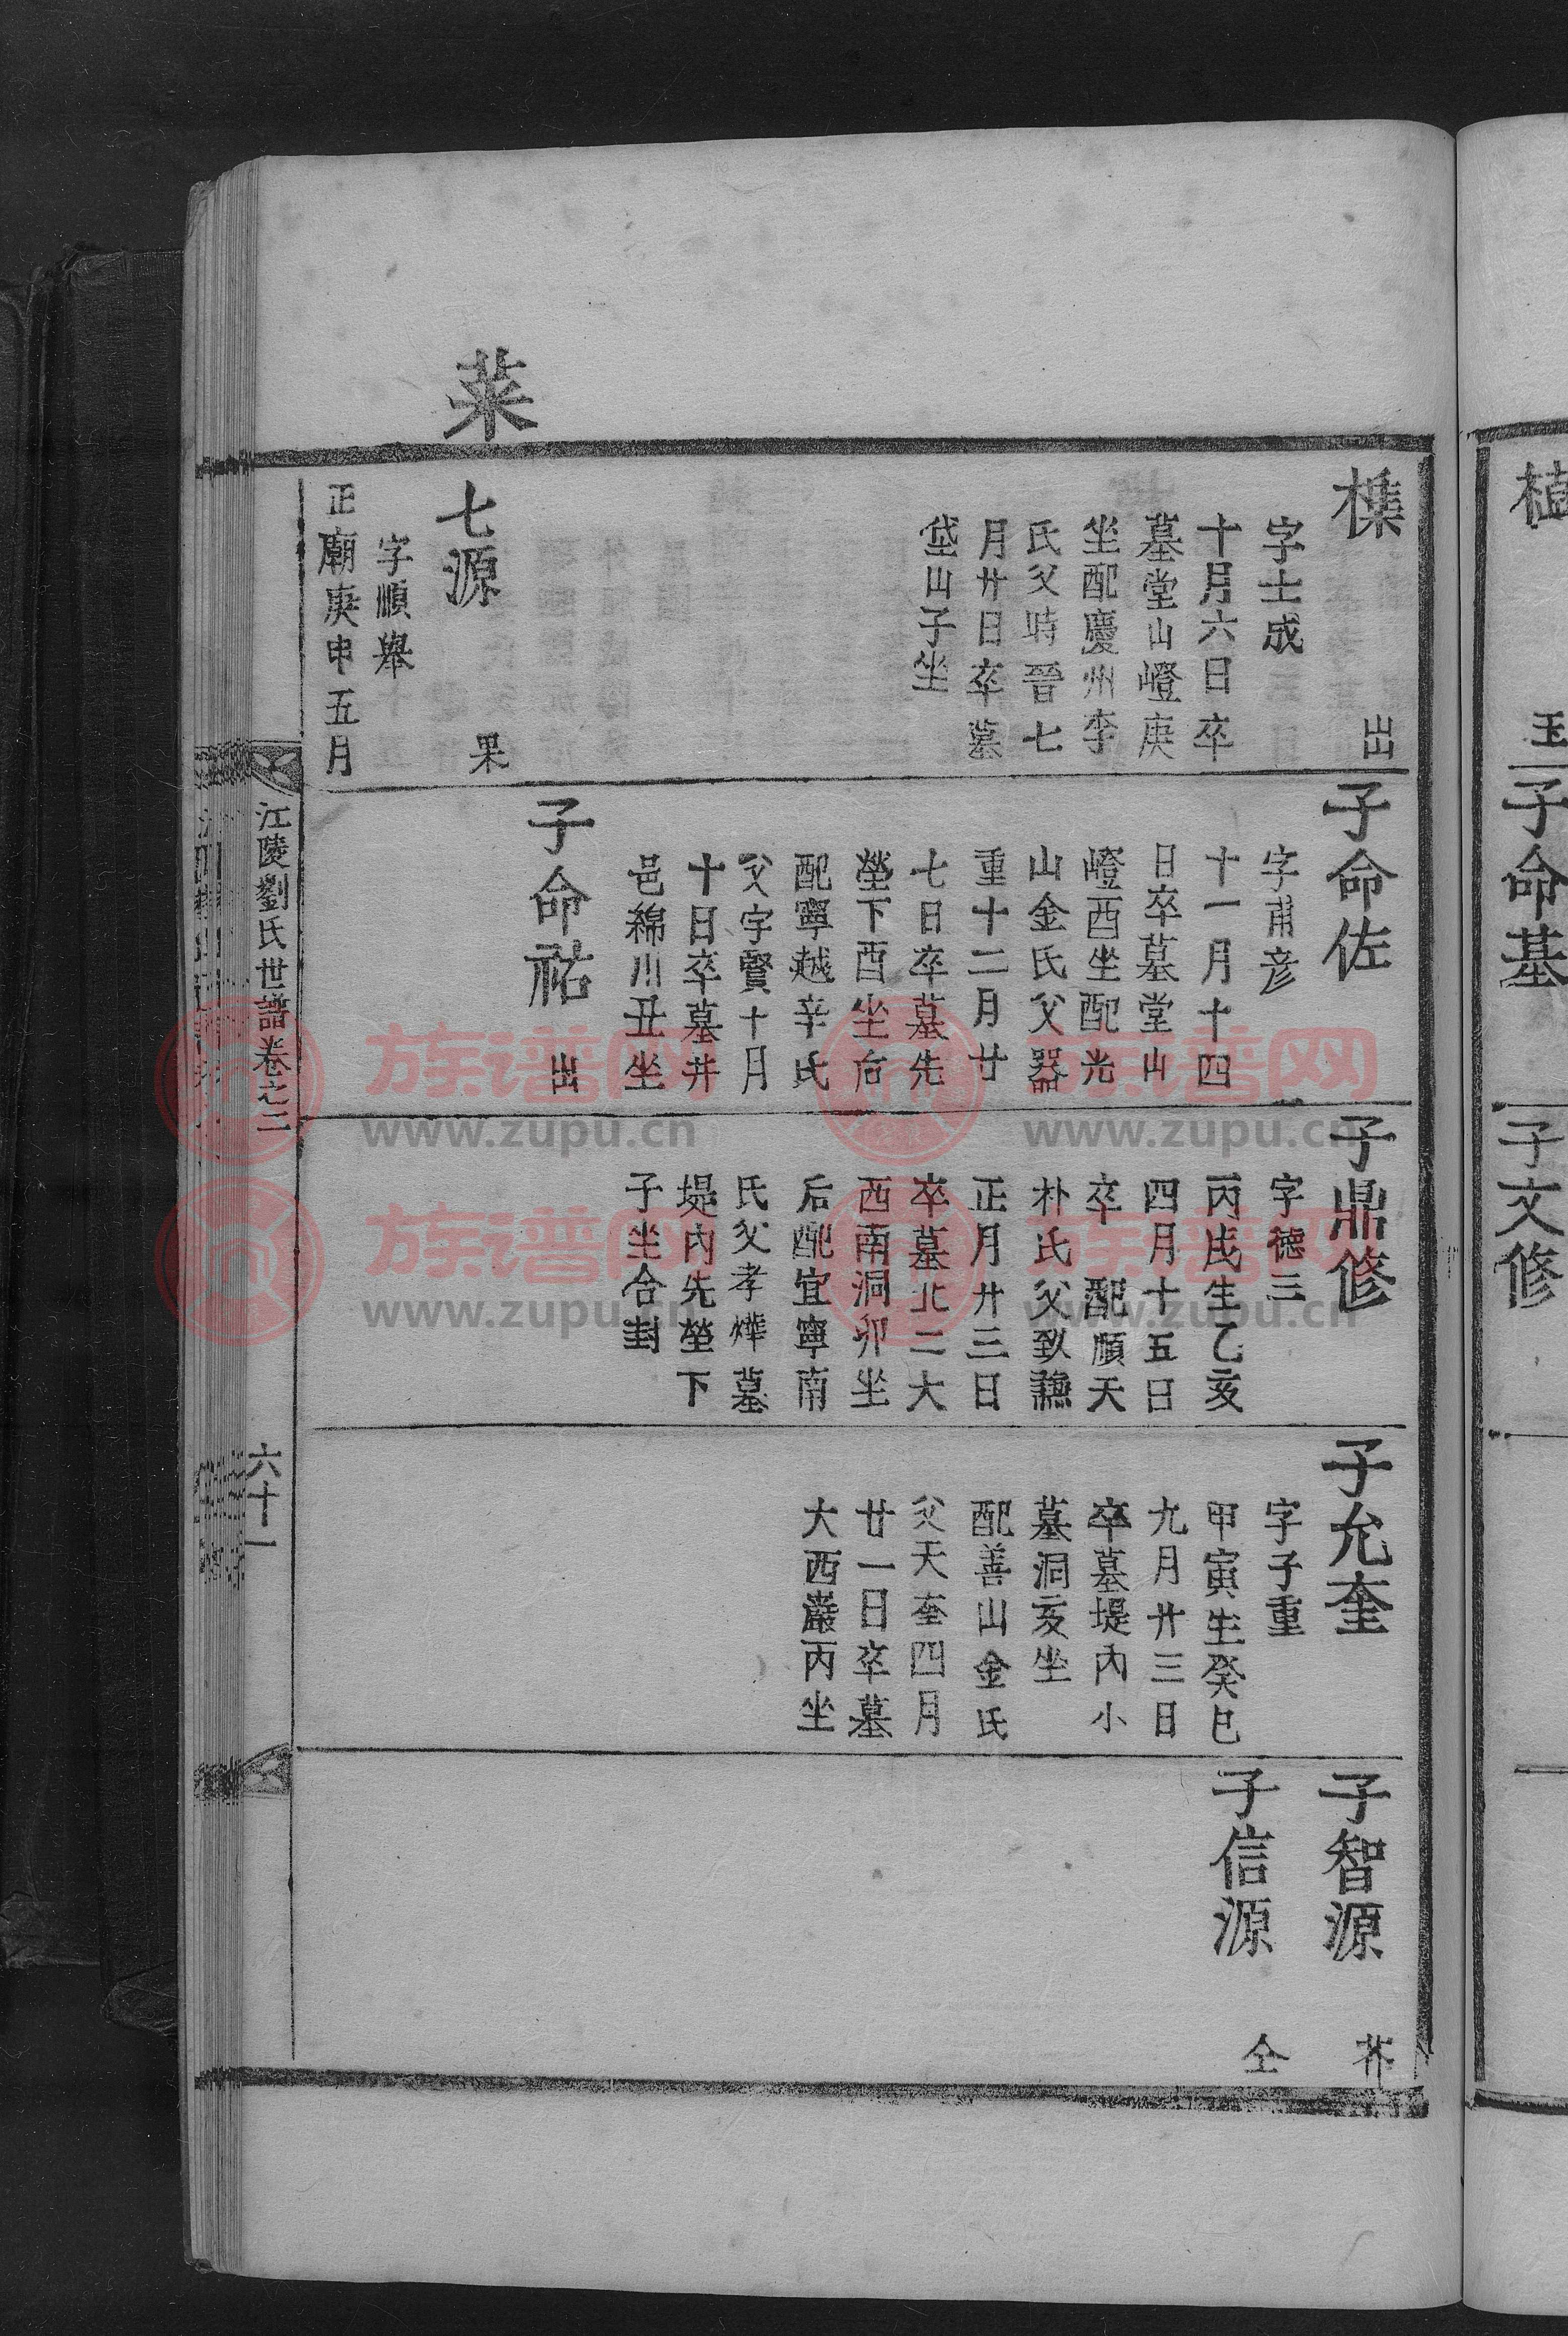 植
玉
子命基
子文修
槕
出
字士成
十月六日卒
墓堂山嶝庚
坐配慶州李
氏父時晉七
月廿日卒墓
垈山子坐
子命佐
字甫彦
十一月十四
日卒墓堂山
嶝酉坐配光
山金氏父器
重十二月廿
七日卒墓先
塋下酉坐后
配寧越辛氏
父字賢十月
十日卒墓井
邑綿川丑坐
子鼎修
字德三
丙戌生乙亥
四月十五日
卒 配順天
朴氏父致讌
正月廿三日
卒墓北二大
西南洞卯坐
后配宜寧南
氏父孝燁墓
堤內先塋下
子坐合封
子允奎
字子重
甲寅生癸巳
九月廿三日
卒墓堤內小
墓洞亥坐
配善山金氏
父天奎四月
廿一日卒墓
大西巖丙坐
子智源
芥
子信源
仝
子命祐
出
菜
七源
果
字順舉
正廟庚申五月
江陵劉氏世譜卷之二
六十一
族谱网
www.zupu.cn
族谱网
www.zupu.cn
族谱网
www.zupu.cn
族谱网
www.zupu.cn